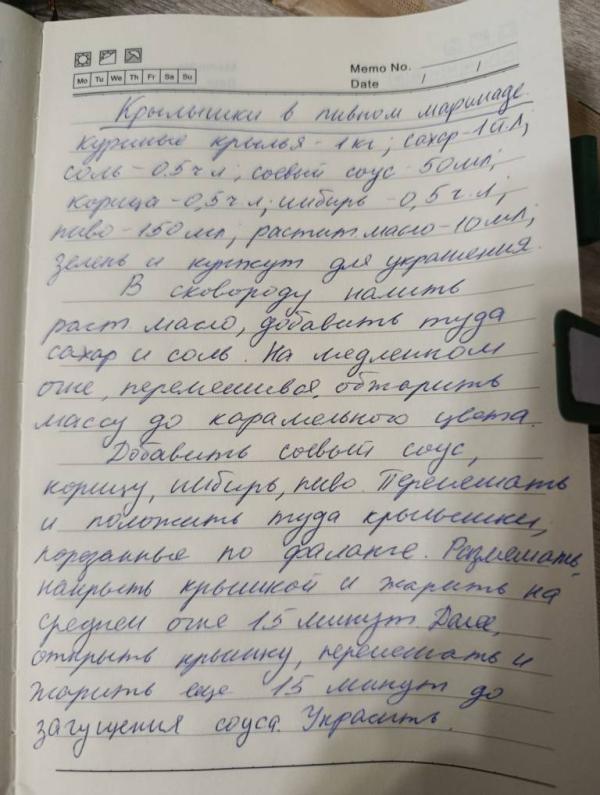 Memo No.
Mo Tu We Th Fr Sa Su
Date / /
Крылышки в пивном маринаде.
куриные крылья - 1 кг; сахар - 1 ст.л;
соль - 0.5 ч л; соевый соус - 50 мл;
корица - 0,5 ч. л; имбирь - 0,5 ч. л.;
пиво - 150 мл; растит масло - 10 мл;
зелень и кунжут для украшения.
В сковороду налить
раст. масло, добавить туда
сахар и соль. На медленном
огне, перемешивая, обжарить
массу до карамельного цвета.
Добавить соевый соус,
корицу, имбирь, пиво. Перемешать
и положить туда крылышки,
порезанные по фаланге. Размешать,
накрыть крышкой и жарить на
среднем огне 15 минут. Далее,
открыть крышку, перемешать и
жарить еще 15 минут до
загущения соуса. Украсить.